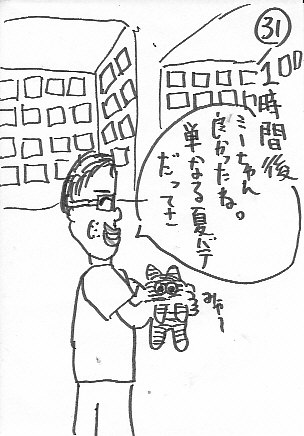 31
100時間後
ミーちゃん
良かったね。
単なる夏バテ
だってさ
みゃー